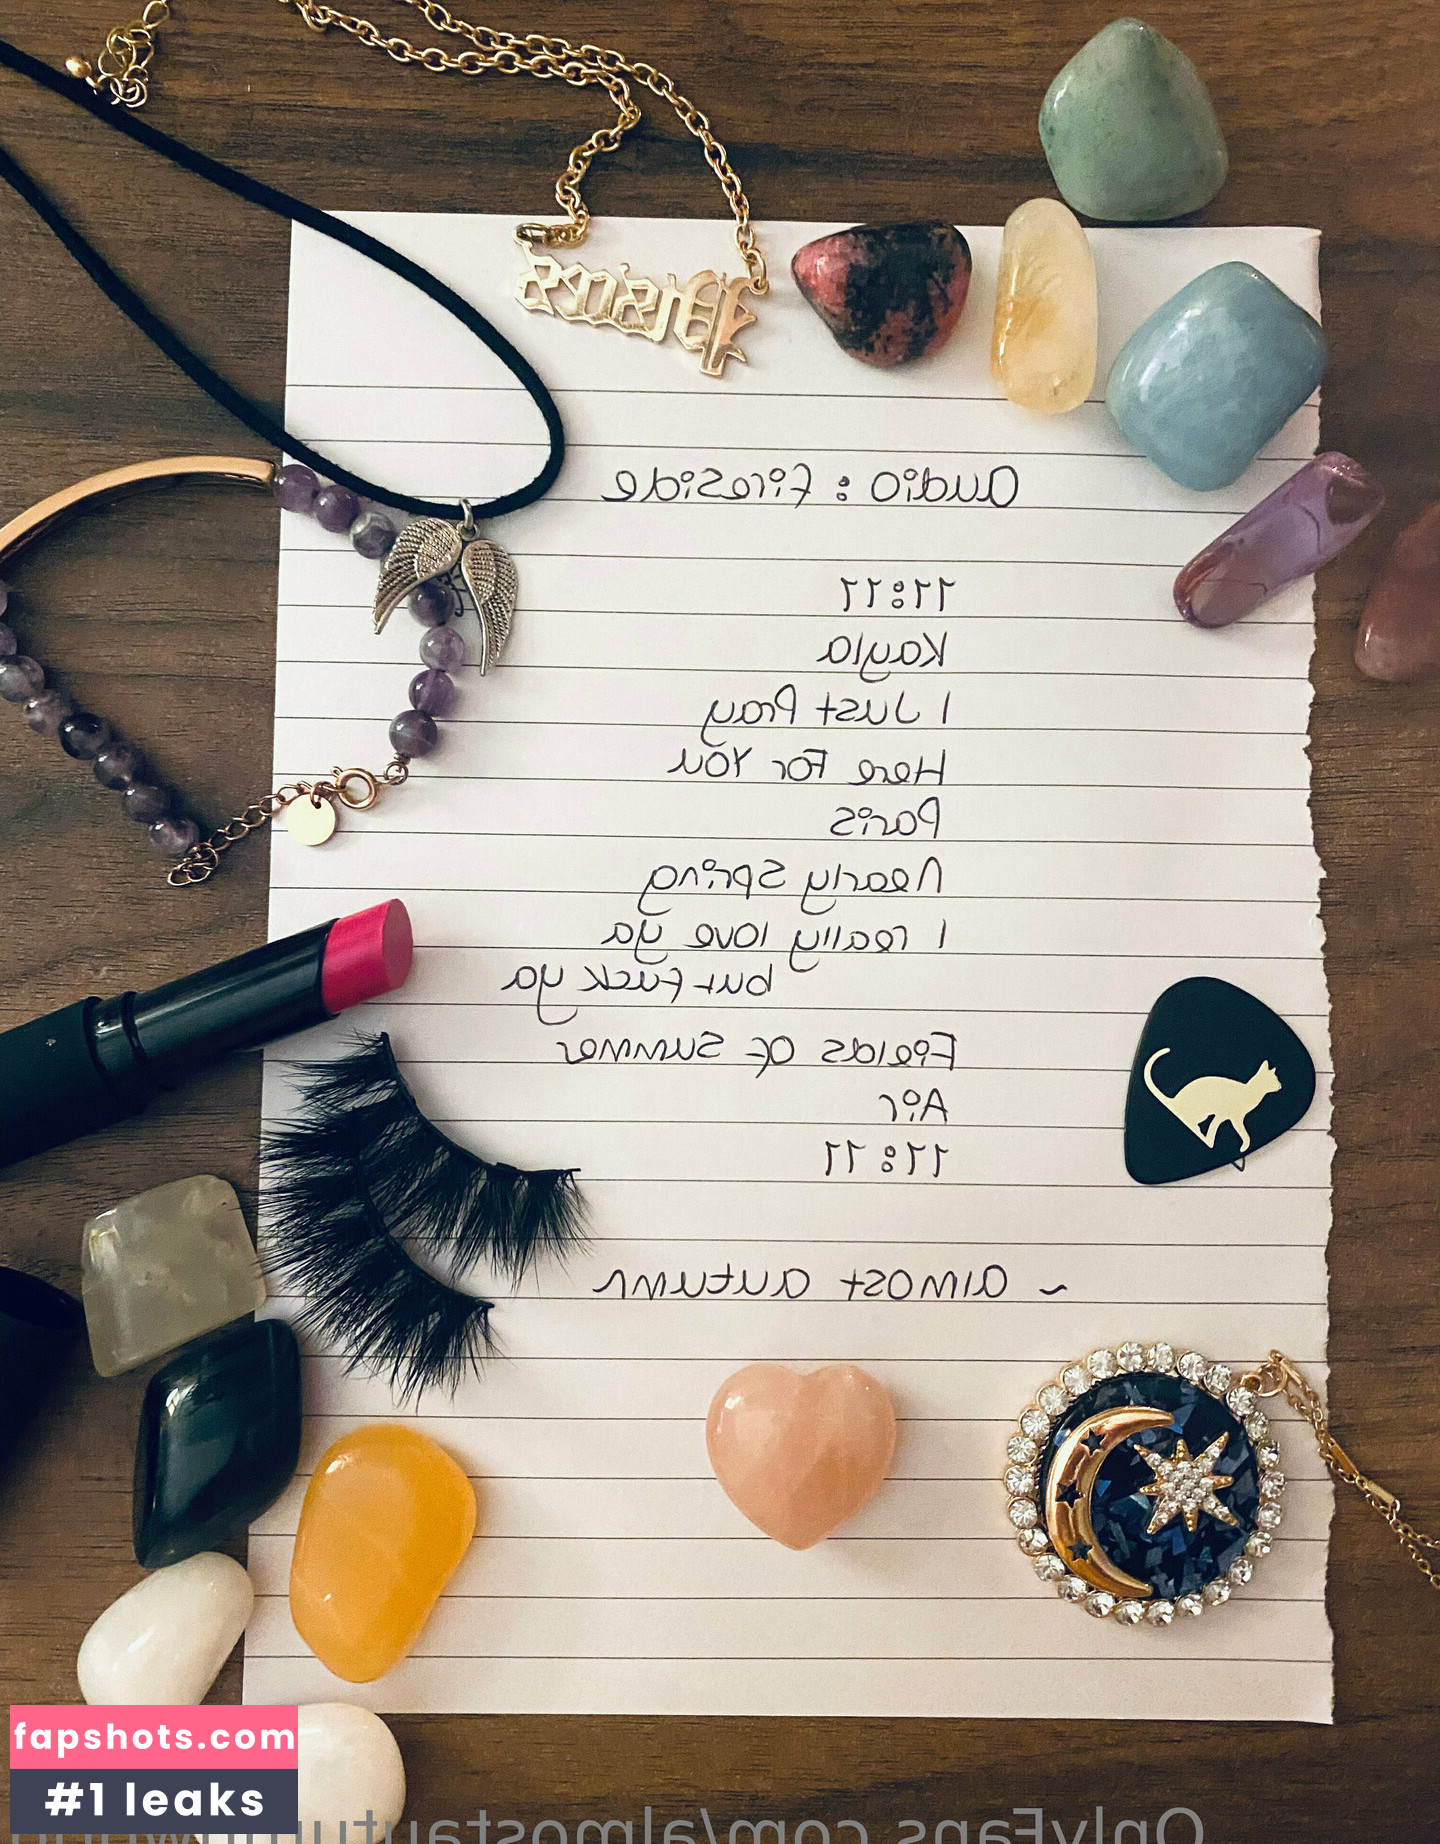 Pisces
audio: fireside
11:11
Kayla
I Just Pray
Here For You
Paris
Nearly Spring
I really love ya
but fuck ya
Fields Of Summer
Air
11:11
~ almost autumn
fapshots.com
#1 leaks